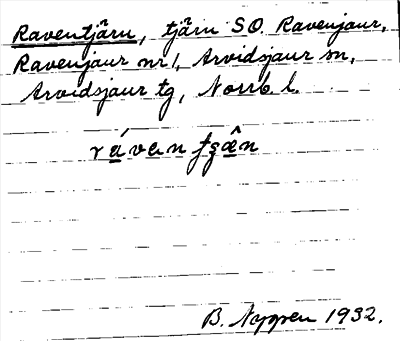 Raventjärn, tjärn SO. Ravenjaur,
Ravenjaur nr 1, Arvidsjaur sn,
Arvidsjaur tg, Norrb. l.
B. Nygren 1932.